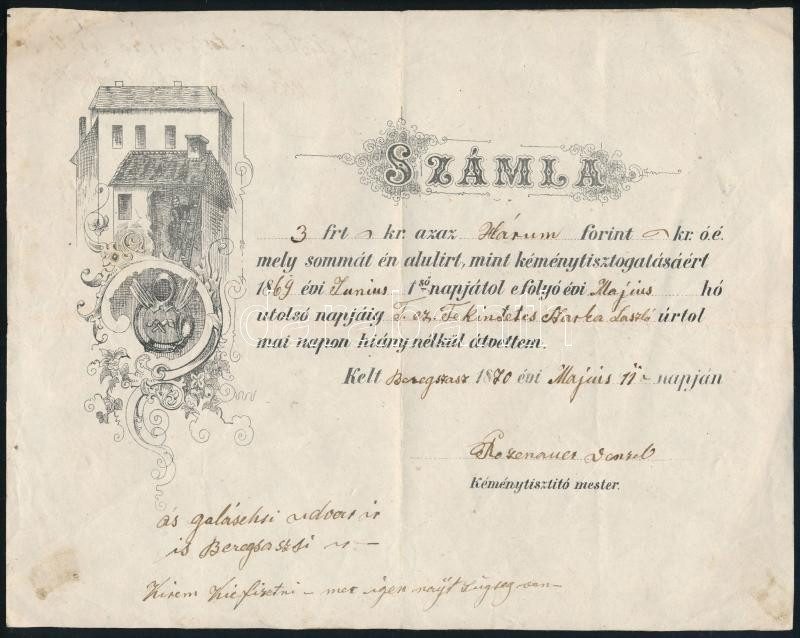 SZÁMLA
3 frt kr. azaz Három forint kr. ó.é.
mely sommát én alulirt, mint kéménytisztogatásáért
1869 évi Junius 1ső napjátol e folyó évi Május hó
utolsó napjáig T. cz. Tekintetes Barka László úrtol
mai napon hiány nélkül átvettem.
Kelt Beregszasz 1870 évi Május 11 napján
Rozenauer
Kéménytisztitó mester.
udvar
is Beregszaszi
Kirem Kiefizetni mer igen nayt van